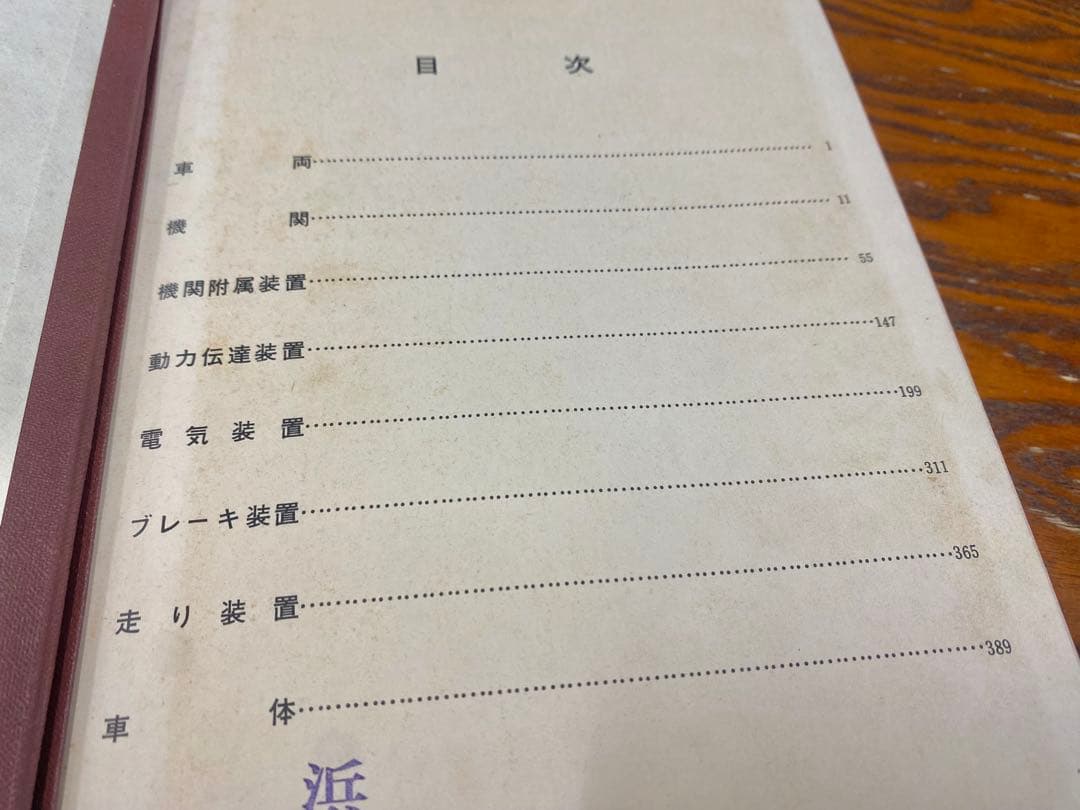 目次
車両……1
機関……11
機関附属装置……55
動力伝達装置……147
電気装置……199
ブレーキ装置……311
走り装置……365
車体……389
浜